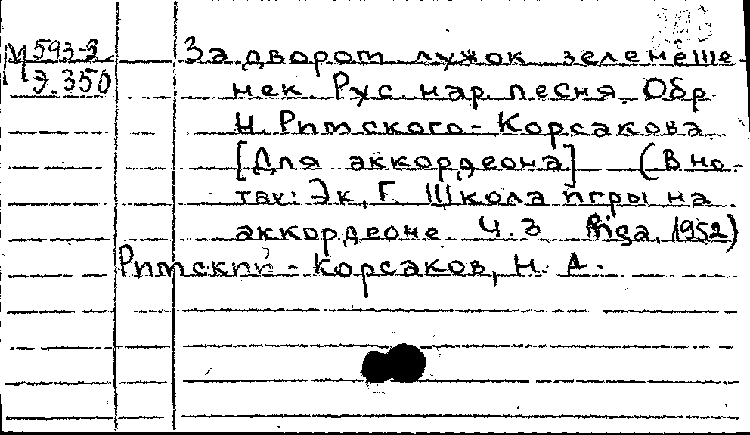 М 593-3
Э.350
За двором лужок зеленёше-
нек. Рус. нар. песня. Обр.
Н. Римского-Корсакова
[Для аккордеона] (В но-
тах: Эк, Г. Школа игры на
аккордеоне. Ч. 3 Riga, 1952)
Римский-Корсаков, Н. А.